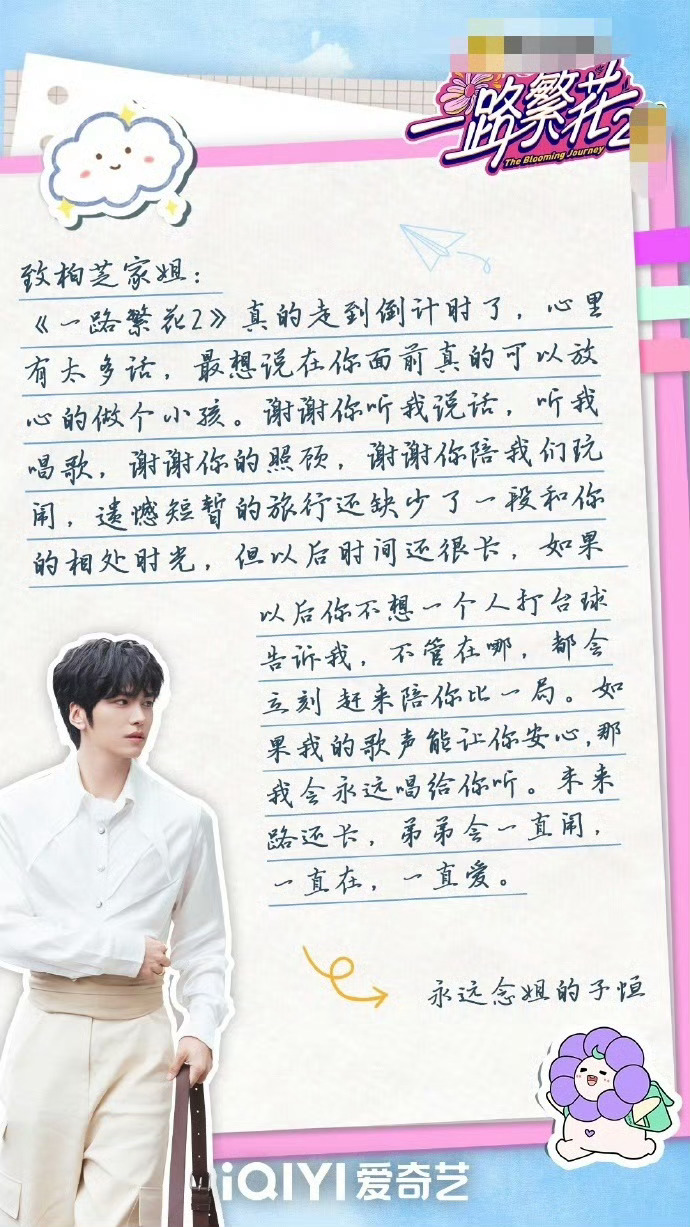 一路繁花2
The Blooming Journey
致柏芝家姐：
《一路繁花2》真的走到倒计时了，心里
有太多话，最想说在你面前真的可以放
心的做个小孩。谢谢你听我说话，听我
唱歌，谢谢你的照顾，谢谢你陪我们玩
闹，遗憾短暂的旅行还缺少了一段和你
的相处时光，但以后时间还很长，如果
以后你不想一个人打台球
告诉我，不管在哪，都会
立刻赶来陪你比一局。如
果我的歌声能让你安心，那
我会永远唱给你听。未来
路还长，弟弟会一直闹，
一直在，一直爱。
永远念姐的子恒
iQIYI 爱奇艺